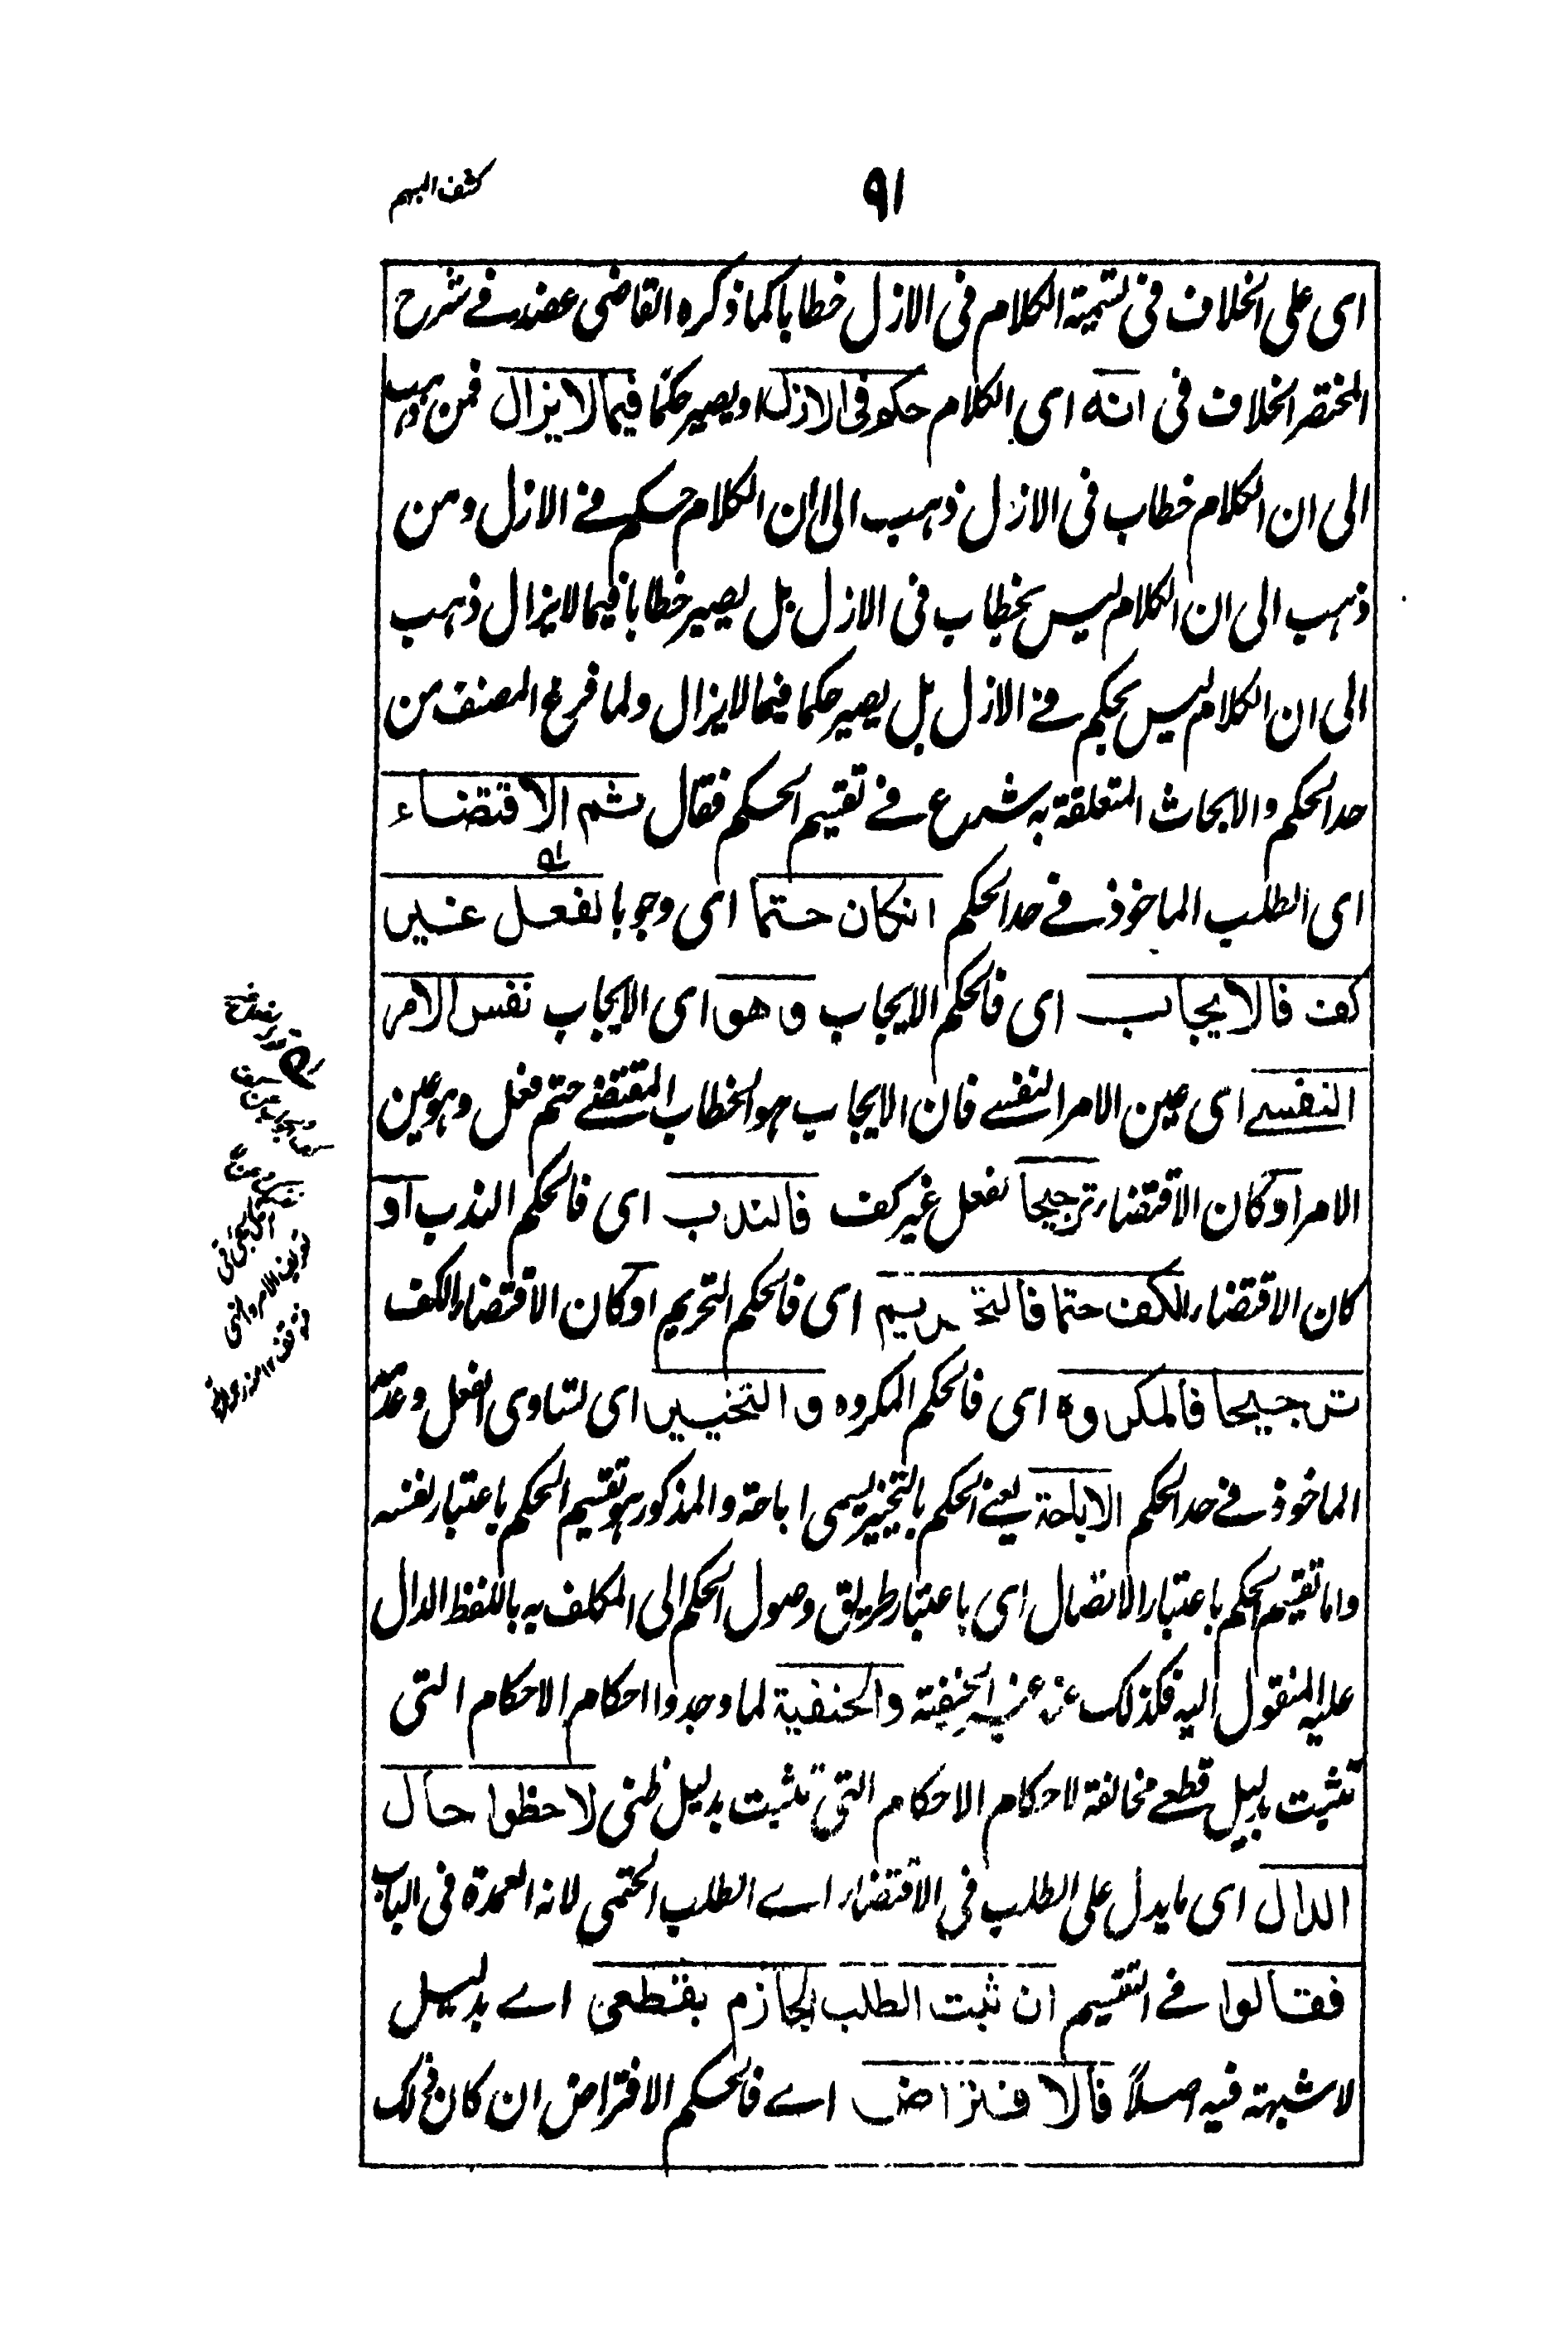 كشف المبهم
٩١
اى على الخلاف فى تسمية الكلام فى الازل خطابا كما ذكره القاضى عضد فے شرح
المختصر الخلاف فى انه اى الكلام حكم فى الازل او يصير حكما فيما لا يزال فمن ذهب
الى ان الكلام خطاب فى الازل ذهب الى ان الكلام حكم فے الازل ومن
ذهب الى ان الكلام ليس بخطاب فى الازل بل يصير خطابا فيما لا يزال ذهب
الى ان الكلام ليس بحكم فے الازل بل يصير حكما فيما لا يزال ولما فرغ المصنف من
حد الحكم والابحاث المتعلقة به شرع فے تقسيم الحكم فقال ثم الاقتضاء
اى الطلب الماخوذ فے حد الحكم انكان حتما اى وجوبا لفعل غير
كف فالايجاب اى فالحكم الايجاب وهو اى الايجاب نفس الامر
النفسے اى عين الامر النفسے فان الايجاب هو الخطاب المقتضے حتم فعل وهو عين
الامر او كان الاقتضاء ترجيحا لفعل غير كف فالندب اى فالحكم الندب او
كان الاقتضاء لكف حتما فالتحريم اى فالحكم التحريم او كان الاقتضاء لكف
ترجيحا فالمكروه اى فالحكم المكروه والتخيير اى تساوى الفعل وعدمه
الماخوذ فے حد الحكم الاباحة يعنے الحكم بالتخيير يسمى اباحة والمذكور هو تقسيم الحكم باعتبار نفسه
واما تقسيم الحكم باعتبار الاتصال اى باعتبار طريق وصول الحكم الى المكلف به باللفظ الدال
عليه المنقول اليه فكذلك عند غير الحنفية والحنفية لما وجدوا احكام الاحكام التى
تثبت بدليل قطعے مخالفة لاحكام الاحكام التى تثبت بدليل ظنى لاحظوا حال
الدال اى ما يدل على الطلب فى الاقتضاء اے الطلب الحتمى لانه العمدة فى الباب
فقالوا فے التقسيم ان ثبت الطلب الجازم بقطعى اے بدليل
لا شبهة فيه اصلاً فالافتراض اے فالحكم الافتراض ان كان ذلك